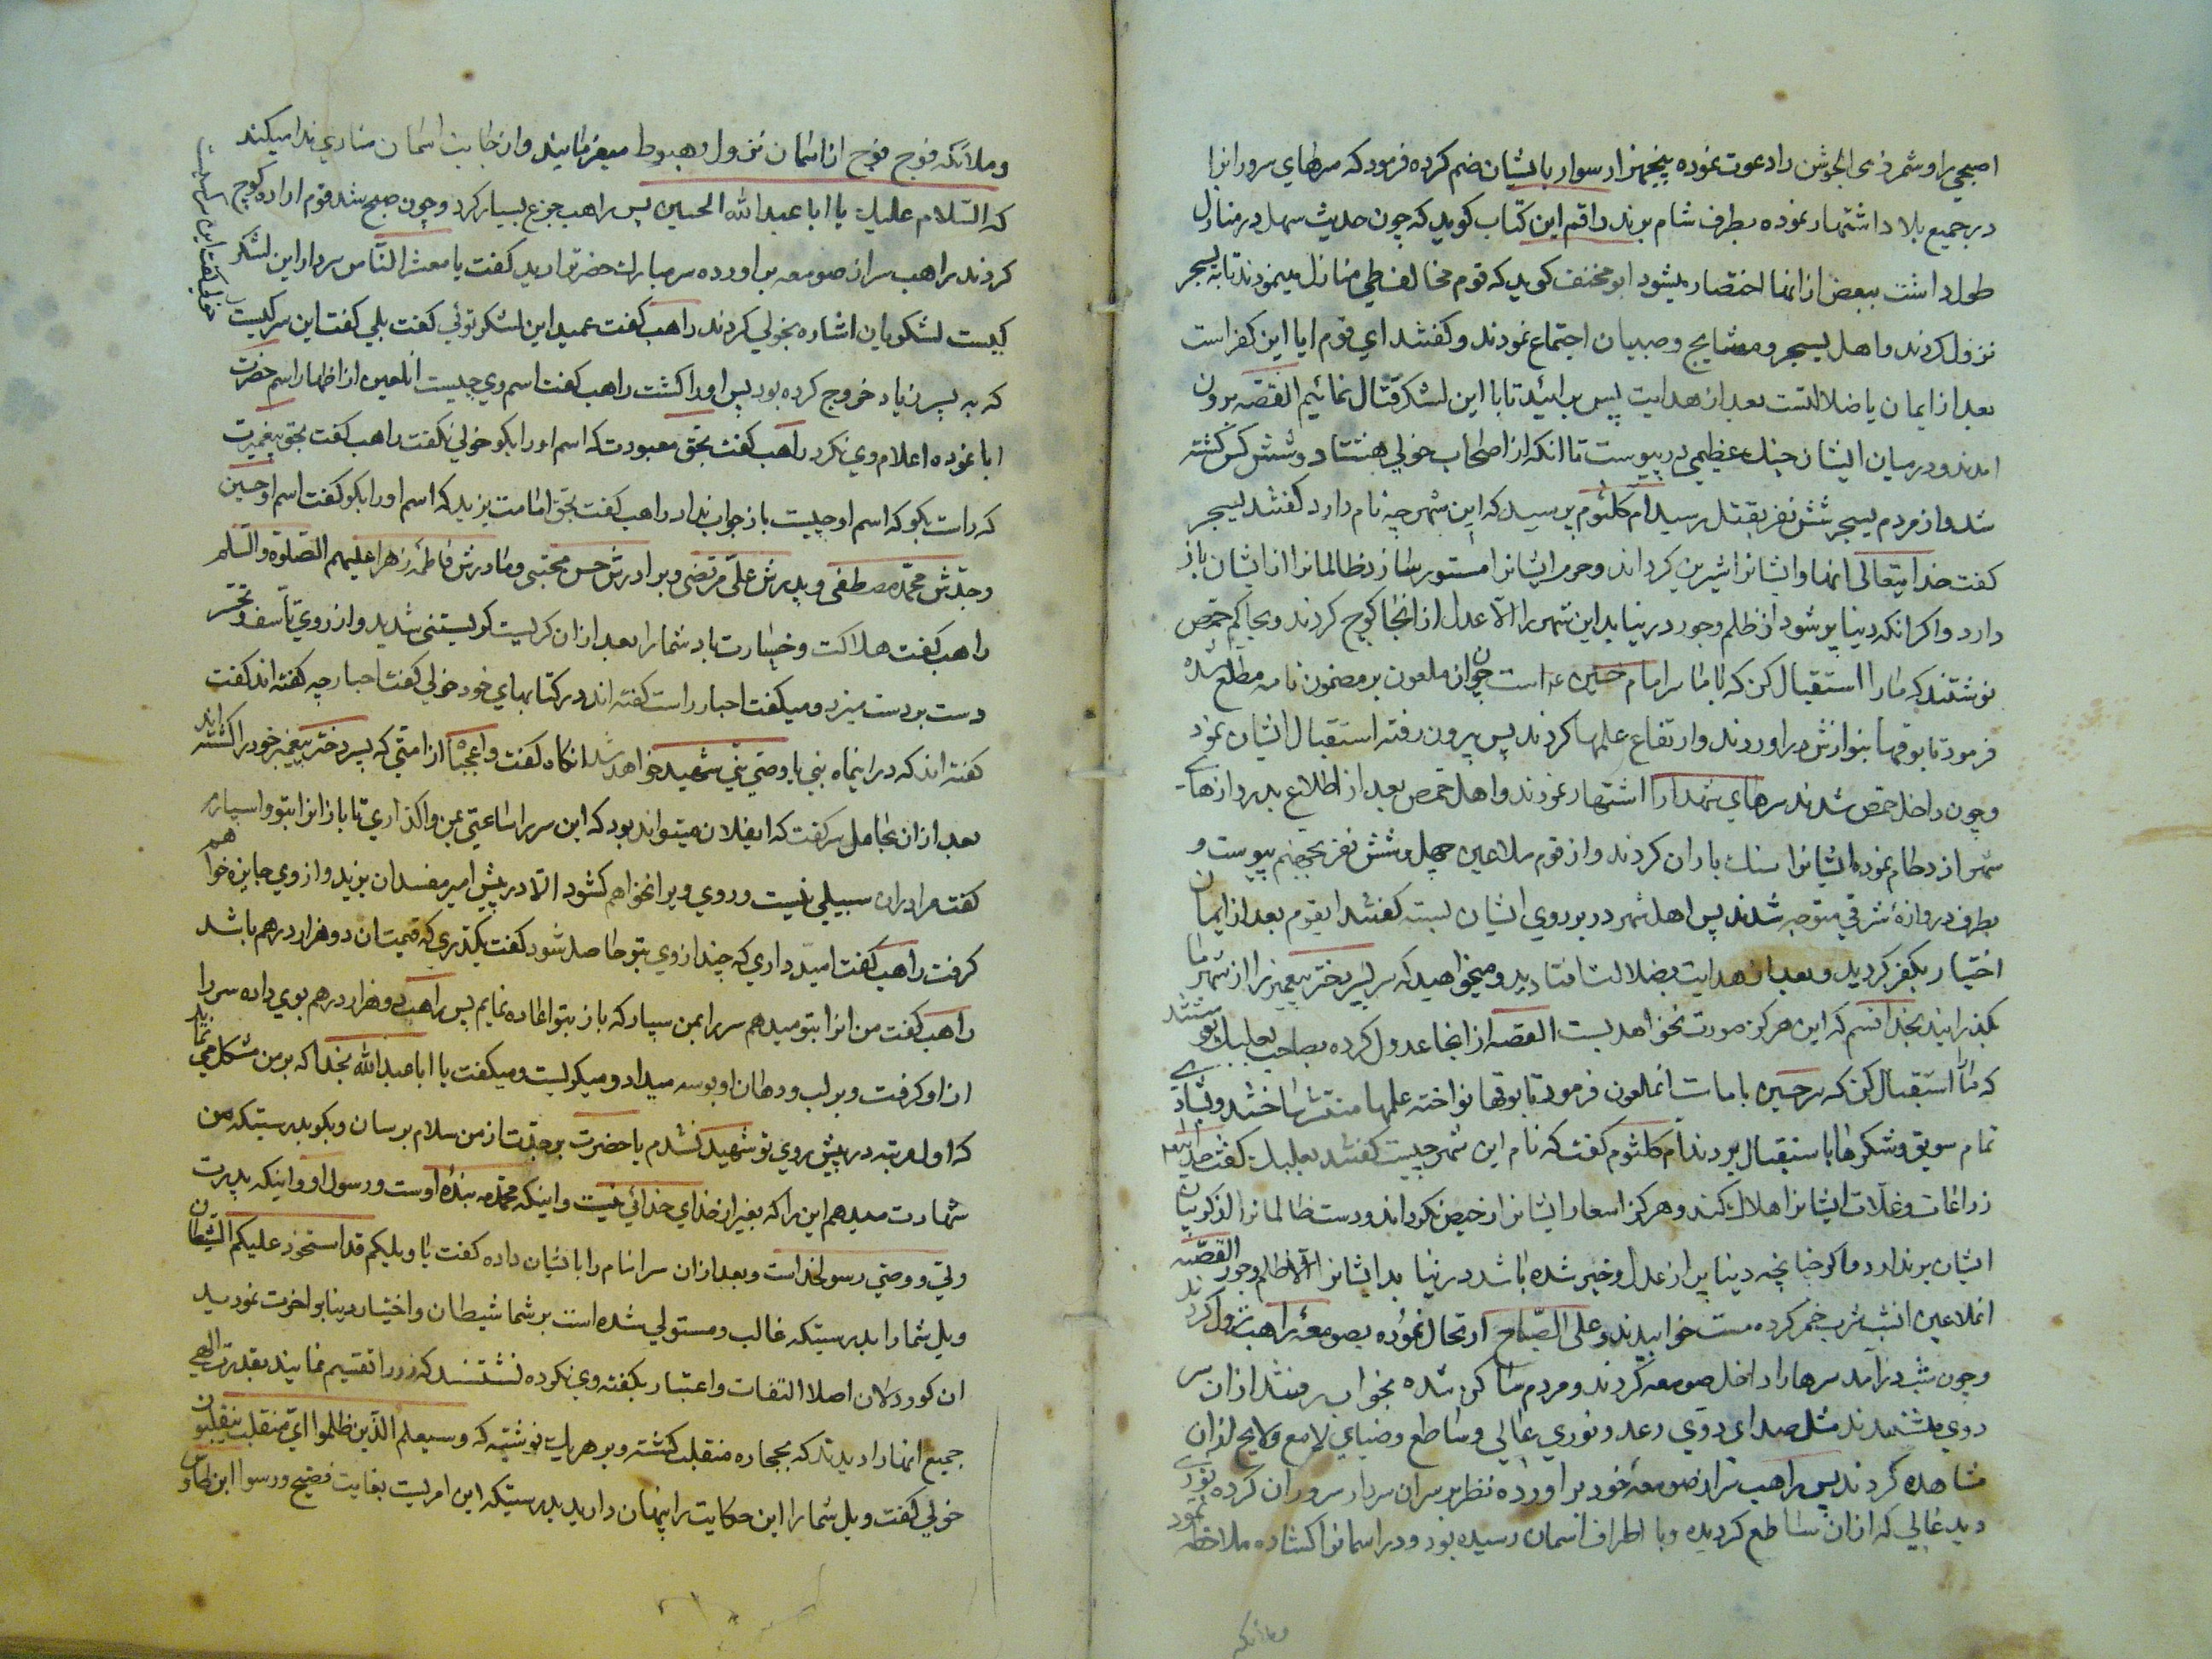 اصبحی را و شمر ذی الجوشن را دعوت نموده پنجهزار سوار باایشان ضم کرده فرمود که سرهای سرورانرا
در جمیع بلاد اشتهار نموده بطرف شام برند راقم این کتاب کوید که چون حدیث سهل در منازل
طول داشت ببعض از انها اختصار میشود ابو مخنف کوید که قوم مخالف طی منازل مینمودند تا به لسیجر
نزول کردند و اهل لسیجر و مشایخ و صبیان اجتماع نمودند و کفتند ای قوم ایا این کفر است
بعد از ایمان یا ضلالتست بعد از هدایت پس برائید تا با این لشکر قتال نمائیم القصه برون
امدند و در میان ایشان جنك عظیمی در پیوست تا انکه از اصحاب خولی هفتاد و شش کس کشته
شد و از مردم لسیجر شش نفر بقتل رسید ام کلثوم پرسید که این شهر چه نام دارد کفتند لسیجر
کفت خدایتعالی انها و ایشانرا شیرین کرداند و حرم ایشانرا مستور سازد ظالمانرا از ایشان باز
دارد و اکر انکه دنیا پر شود از ظلم و جور در نیابد این شهر را الا عدل از انجا کوچ کردند و بحاکم حمص
نوشتند که ما را استقبال کن که با ما سر امام حسین ع است چون ان ملعون بر مضمون نامه مطلع شد
فرمود تا بوقها بنوازش در اوردند و ارتفاع علمها کردند پس بیرون رفته استقبال ایشان نمود
و چون داخل حمص شدند سرهای شهدا را اشتهار نمودند و اهل حمص بعد از اطلاع بدروازهای
شهر ازدحام نموده ایشانرا سنك باران کردند و از قوم ملاعین چهل و شش نفر بجهنم پیوست و
بطرف دروازه شرقی متوجه شدند پس اهل شهر در بر روی ایشان بسته کفتند ایقوم بعد از ایمان
اختیار بکفر کردید و بعد از هدایت بضلالت افتادید و میخواهید که سر پسر دختر پیغمبر را از شهر ما
بکذرانید بخدا قسم که این هرکز صورت نخواهد بست القصه از انجا عدول کرده بصاحب بعلبك نوشتند
که ما را استقبال کن که سر حسین با ماست انملعون فرمود تا بوقها نواخته علمها منتشر ساختند و بشادی
تمام سویق و شکرها باستقبال بردند ام کلثوم کفت که نام این شهر چیست کفتند بعلبك کفت خدایتعالی
زراعات و غلات ایشانرا هلاك کند و هرکز اسعار ایشانرا رخیص نکرداند و دست ظالمانرا
ایشان برندارد و اکر چنانچه دنیا پر از عدل و خیر شده باشد در نیابد ایشانرا الا ظلم و جور القصه
انملاعین انشب شرب خمر کرده مست خوابیدند و علی الصباح ارتحال نموده بصومعه راهب نزول کردند
و چون شب درامد سرها را داخل صومعه کردند و مردم ساکن شده بخواب رفتند از ان سر
دوی میشنیدند مثل صدای دوی رعد و نوری عالی و ساطع و ضیای لامع و لایح از ان
مشاهده کردند پس راهب سر از صومعه خود بر اورده نظر بر سر ان سردار سروران کرده نوری
دید عالی که از ان ساطع کردیده و با اطراف اسمان رسیده بود و در اسمانرا کشاده ملاحظه نمود
وملائکه
و ملائکه فوج فوج از اسمان نزول و هبوط میفرمایند و از جانب اسمان منادی ندا میکند
که السلام علیك یا ابا عبد الله الحسین پس راهب جزع بسیار کرد و چون صبح شد قوم اراده کوچ
کردند راهب سر از صومعه بر اورده سر مبارك حضرترا دید کفت یا معشر الناس سردار این لشکر
کیست لشکریان اشاره بخولی کردند راهب کفت عمید این لشکر توئی کفت بلی کفت این سر کیست
که به پسر زیاد خروج کرده بود پس او را کشت راهب کفت اسم وی چیست انلعین از اظهار اسم حضرت
ابا نموده اعلام وی نکرد راهب کفت بحق معبودت که اسم او را بکو خولی نکفت راهب کفت بحق پیغمبرت
که راست بکو که اسم او چیست باز جواب نداد راهب کفت بحق امامت یزید که اسم او را بکو کفت اسم او حسین
و جدش محمد مصطفی و پدرش علی مرتضی و برادرش حسن مجتبی و مادرش فاطمه زهرا علیهم الصلوة و السلم
راهب کفت هلاکت و خسارت باد شما را بعد از ان کریست کریستنی شدید و از روی تأسف و تحسر
دست بر دست میزد و میکفت احبار راست کفته اند در کتابهای خود خولی کفت احبار چه کفته اند کفت
کفته اند که در اینماه نبی یا وصی نبی شهید خواهد شد انکاه کفت واعجبا از امتی که پسر دختر پیغمبر خود را کشته اند
بعد از ان بحامل سر کفت که ایفلان میتواند بود که این سر را ساعتی بمن واکذاری تا باز انرا بتو واسپارم
کفت مرا بدان سبیلی نیست و روی ویرا نخواهم کشود الا در پیش امیر مفسدان یزید و از وی جایزه خواهم
کرفت راهب کفت امید داری که چند از وی بتو حاصل شود کفت بکذری که قیمت ان دو هزار درهم باشد
راهب کفت من انرا بتو میدهم سر را بمن سپار که باز بتو اعاده نمایم پس راهب دو هزار درهم بوی داده سر را
از او کرفت و بر لب و دهان او بوسه میداد و میکریست و میکفت یا ابا عبد الله بخدا که بر من مشکل می نماید
که اول مرتبه در پیش روی تو شهید نشدم یا حضرت بر جدت از من سلام برسان و بکو بدرستیکه من
شهادت میدهم این را که بغیر از خدای خدائی نیست و اینکه محمد ص بنده اوست و رسول او و اینکه پدرت
ولی و وصی رسولخداست و بعد از ان سر امام را بایشان داده کفت یا ویلیکم قد استحوذ علیکم الشیطان
ویل شما را بدرستیکه غالب و مستولی شده است بر شما شیطان و اختیار دنیا بر اخرت نمودید
ان کوردلان اصلا التفات و اعتبار بکفته وی نکرده نشستند که زر را تقسیم نمایند بقدرت الهی
جمیع انها را دیدند که بحجاره منقلب کشته و بر هریك نوشته که و سیعلم الذین ظلموا ای منقلب ینقلبون
خولی کفت ویل شما را این حکایت را پنهان دارید بدرستیکه این امریست بغایت فضیح و رسوا
خولی کفت این سر